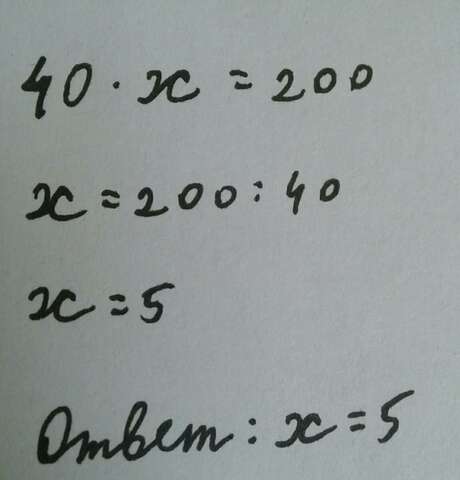 40 · x = 200
x = 200 : 40
x = 5
Ответ : x = 5